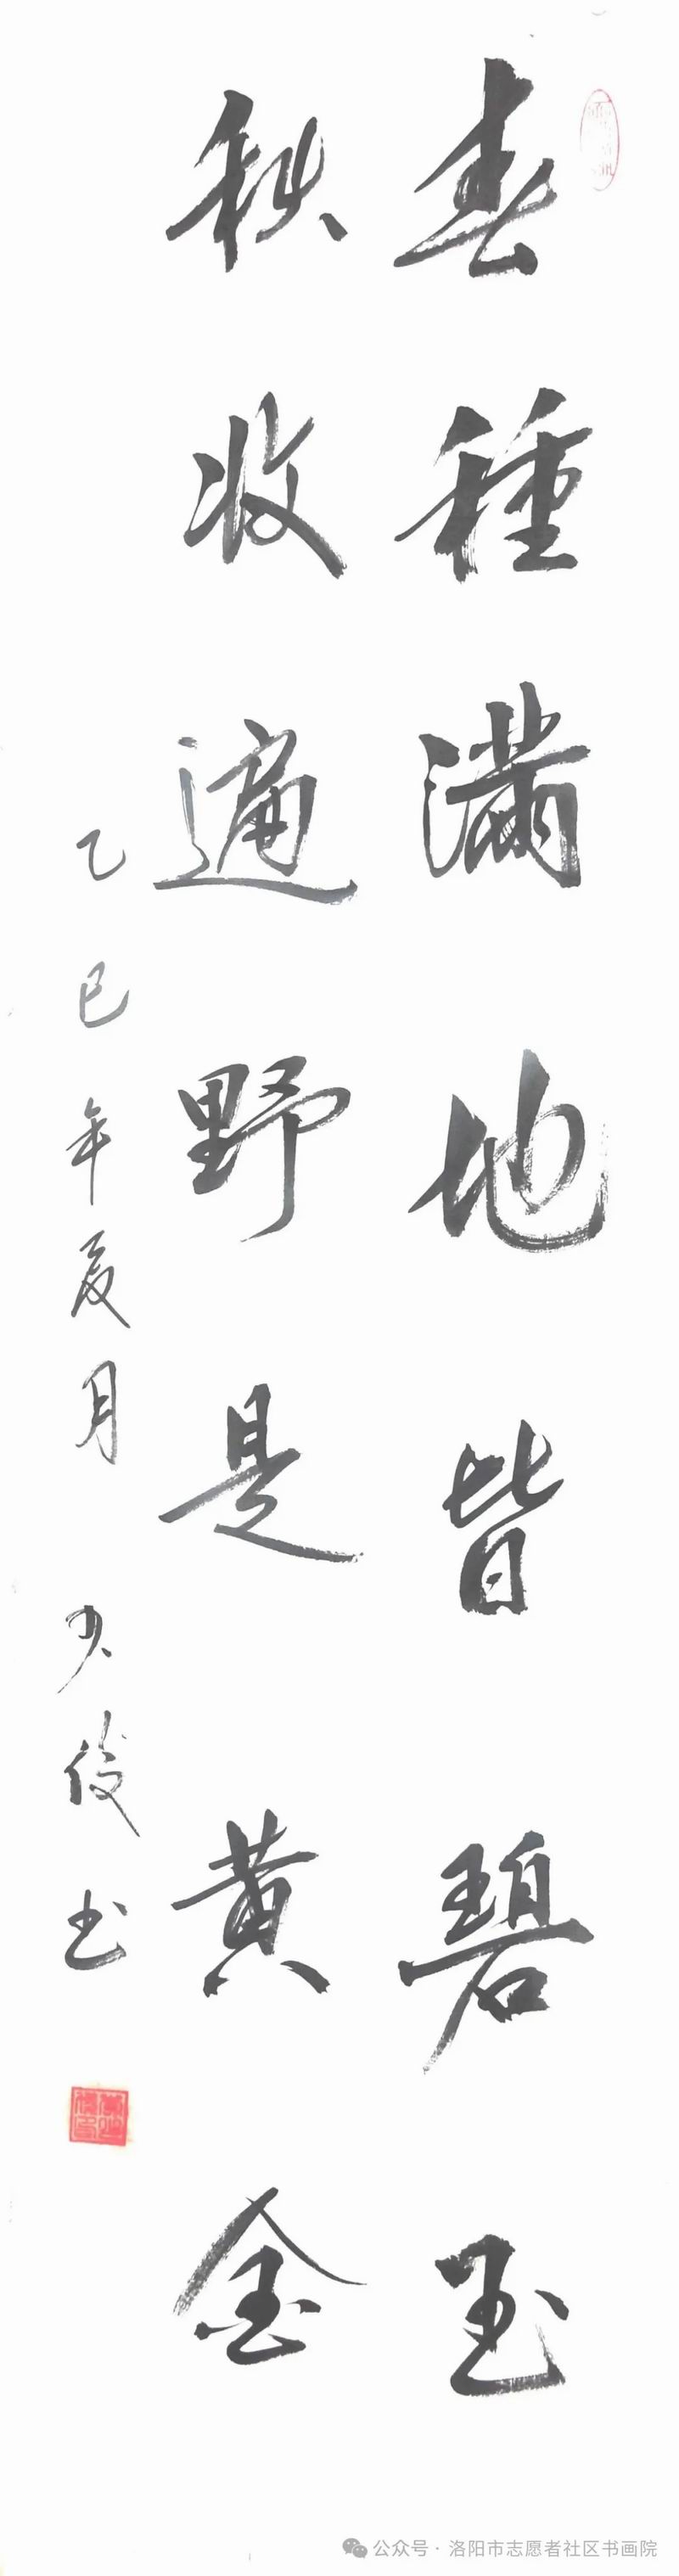 春種滿地皆碧玉
秋收遍野是黄金
乙巳年夏月 少俊书
公众号·洛阳市志愿者社区书画院